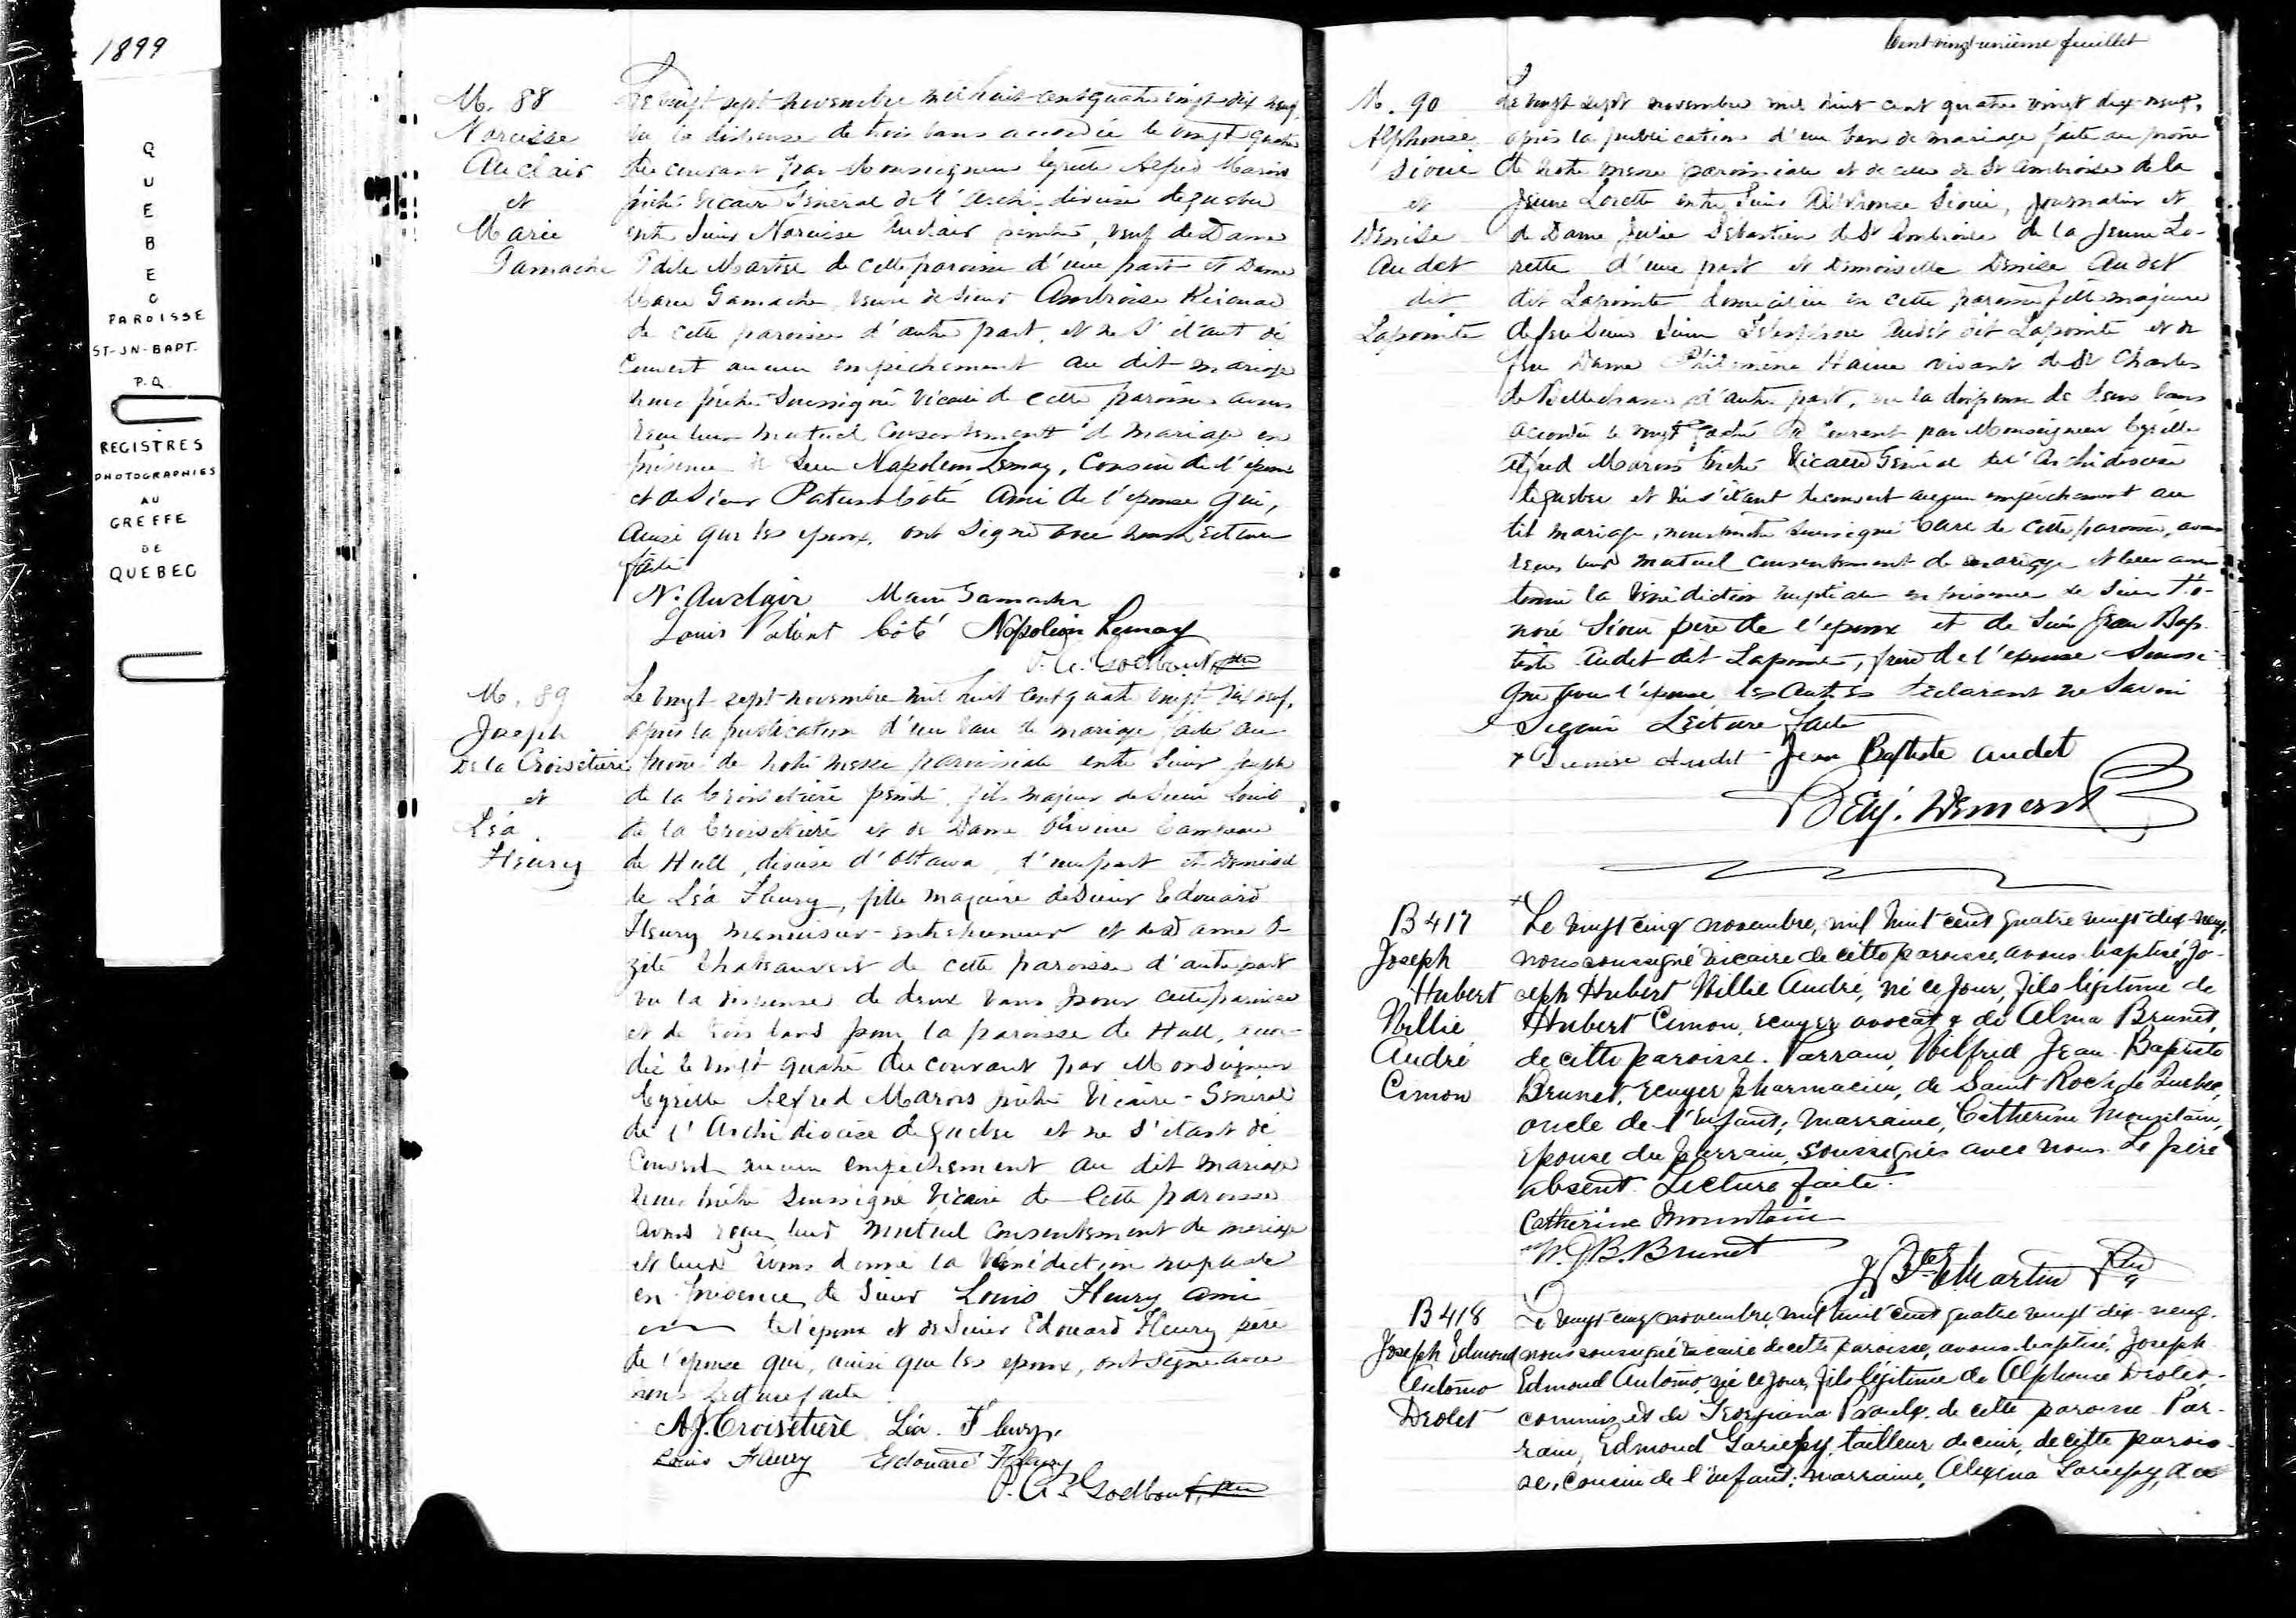 1899
QUEBEC
PAROISSE
ST-JN-BAPT.
P.Q.
REGISTRES
PHOTOGRAPHIES
AU
GREFFE
DE
QUEBEC
M. 88
Narcisse
Auclair
et
Marie
Gamache
Le vingt sept novembre mil huit cent quatre vingt dix neuf,
vu la dispense de trois bans accordée le vingt quatre
du courant par Monseigneur Cyrille Alfred Marois
prêtre Vicaire Général de l'Archi-diocèse de Quebec
entre Sieur Narcisse Auclair peintre, veuf de Dame
de cette paroisse d'une part et Dame
Marie Gamache, veuve de Sieur Ambroise
de cette paroisse d'autre part, et ne s'étant dé
couvert aucun empêchement au dit mariage
nous prêtre soussigné Vicaire de cette paroisse avons
reçu leur mutuel consentement de mariage en
présence de Sieur Napoléon Lemay, Cousin de l'époux
et de Sieur Patient Côté Ami de l'épouse qui,
ainsi que les époux, ont signé avec nous Lecture
faite
N. Auclair Marie Gamache
Louis Patient Côté Napoléon Lemay
P. A. Godbout, Ptre
M. 89
Joseph
De la Croisetière
et
Léa
Fleury
Le vingt-sept novembre mil huit cent quatre vingt dix neuf,
après la publication d'un ban de mariage faite au
prône de notre messe paroissiale entre Sieur Joseph
de la Croisetière peintre, fils majeur de Sieur Louis
de la Croisetière et de Dame
de Hull, diocèse d'Ottawa, d'une part et Demoisel
le Léa Fleury, fille majeure de Sieur Edouard
Fleury menuisier-entrepreneur et de Dame
zite Chateauvert de cette paroisse d'autre part
vu la dispense de deux bans pour cette paroisse
et de trois bans pour la paroisse de Hull, accor-
dée le vingt quatre du courant par Monseigneur
Cyrille Alfred Marois prêtre Vicaire-Général
de l'Archidiocèse de Quebec et ne s'étant dé
couvert aucun empêchement au dit mariage
nous prêtre soussigné Vicaire de cette paroisse
avons reçu leur mutuel consentement de mariage
et leur avons donné la bénédiction nuptiale
en présence de Sieur Louis Fleury ami
de l'époux et de Sieur Edouard Fleury père
de l'épouse qui, ainsi que les époux, ont signé avec
nous Lecture faite
A.J. Croisetière Léa Fleury
Louis Fleury Edouard Fleury
P. A. Godbout, Ptre
Cent vingt-unième feuillet
M. 90
Alphonse
Sioui
et
Denise
Audet
dit
Lapointe
Le vingt sept novembre mil huit cent quatre vingt dix-neuf,
après la publication d'un ban de mariage faite au prône
de notre messe paroissiale et de celle de St Ambroise de la
Jeune Lorette entre Sieur Alphonse Sioui, Journalier et
de Dame Julie Sébastien de St Ambroise de la Jeune Lo-
rette d'une part et Demoiselle Denise Audet
dit Lapointe domiciliée en cette paroisse fille majeure
de feu Sieur Sieur Télesphore Audet dit Lapointe et de
feu Dame Philomène vivant de St Charles
de Bellechasse d'autre part, vu la dispense de deux bans
accordée le vingt quatre du courant par Monseigneur Cyrille
Alfred Marois prêtre Vicaire Général de l'Archidiocèse
de Quebec et ne s'étant découvert aucun empêchement au
dit mariage, nous prêtre soussigné Curé de cette paroisse, avons
reçu leur mutuel consentement de mariage et leur avons
donné la bénédiction nuptiale en présence de Sieur Ho-
noré Sioui père de l'époux et de Sieur Jean Bap-
tiste Audet dit Lapointe, frère de l'épouse Soussi-
gné avec l'épouse les autres déclarant ne savoir
signer Lecture faite
x Denise Audet Jean Baptiste Audet
Benj. Demers
B 417
Joseph
Hubert
Willie
André
Cimon
Le vingt cinq novembre, mil huit cent quatre vingt dix-neuf,
nous soussigné vicaire de cette paroisse, avons baptisé Jo-
seph Hubert Willie André, né ce jour, fils légitime de
Hubert Cimon, ecuyer avocat & de Alma Brunet,
de cette paroisse. Parrain, Wilfred Jean-Baptiste
Brunet, Ecuyer pharmacien, de Saint Roch de Quebec,
oncle de l'enfant; marraine, Catherine Mountain,
épouse du parrain, soussignés avec nous. Le père
absent. Lecture faite.
Catherine Mountain
W. J B. Brunet
J Bte E Martin Ptre
B 418
Joseph Edmond
Antonio
Drolet
Le vingt cinq novembre, mil huit cent quatre vingt dix-neuf.
nous soussigné vicaire de cette paroisse, avons baptisé, Joseph
Edmond Antonio, né ce jour, fils légitime de Alphonse Drolet,
commis et de Georgiana Paradis, de cette paroisse. Par-
rain, Edmond Gariépy, tailleur de cuir, de cette parois-
se, cousin de l'enfant; marraine, Alexina Gariépy,